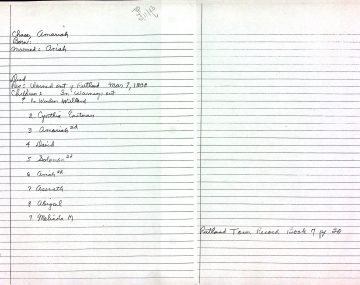 Chase, Amariah
Born:
Married: Aviah
Died
Res: Warned out of Rutland Mar 7, 1808
Children: In Warning out
2 Cynthia Eastman
3 Amariah 2d
4 David
5 Solomon 2d
6 Aviah 2d
7 Asenath
8 Abigail
9 Melinda M
Rutland Town Record Book 4 pg 20